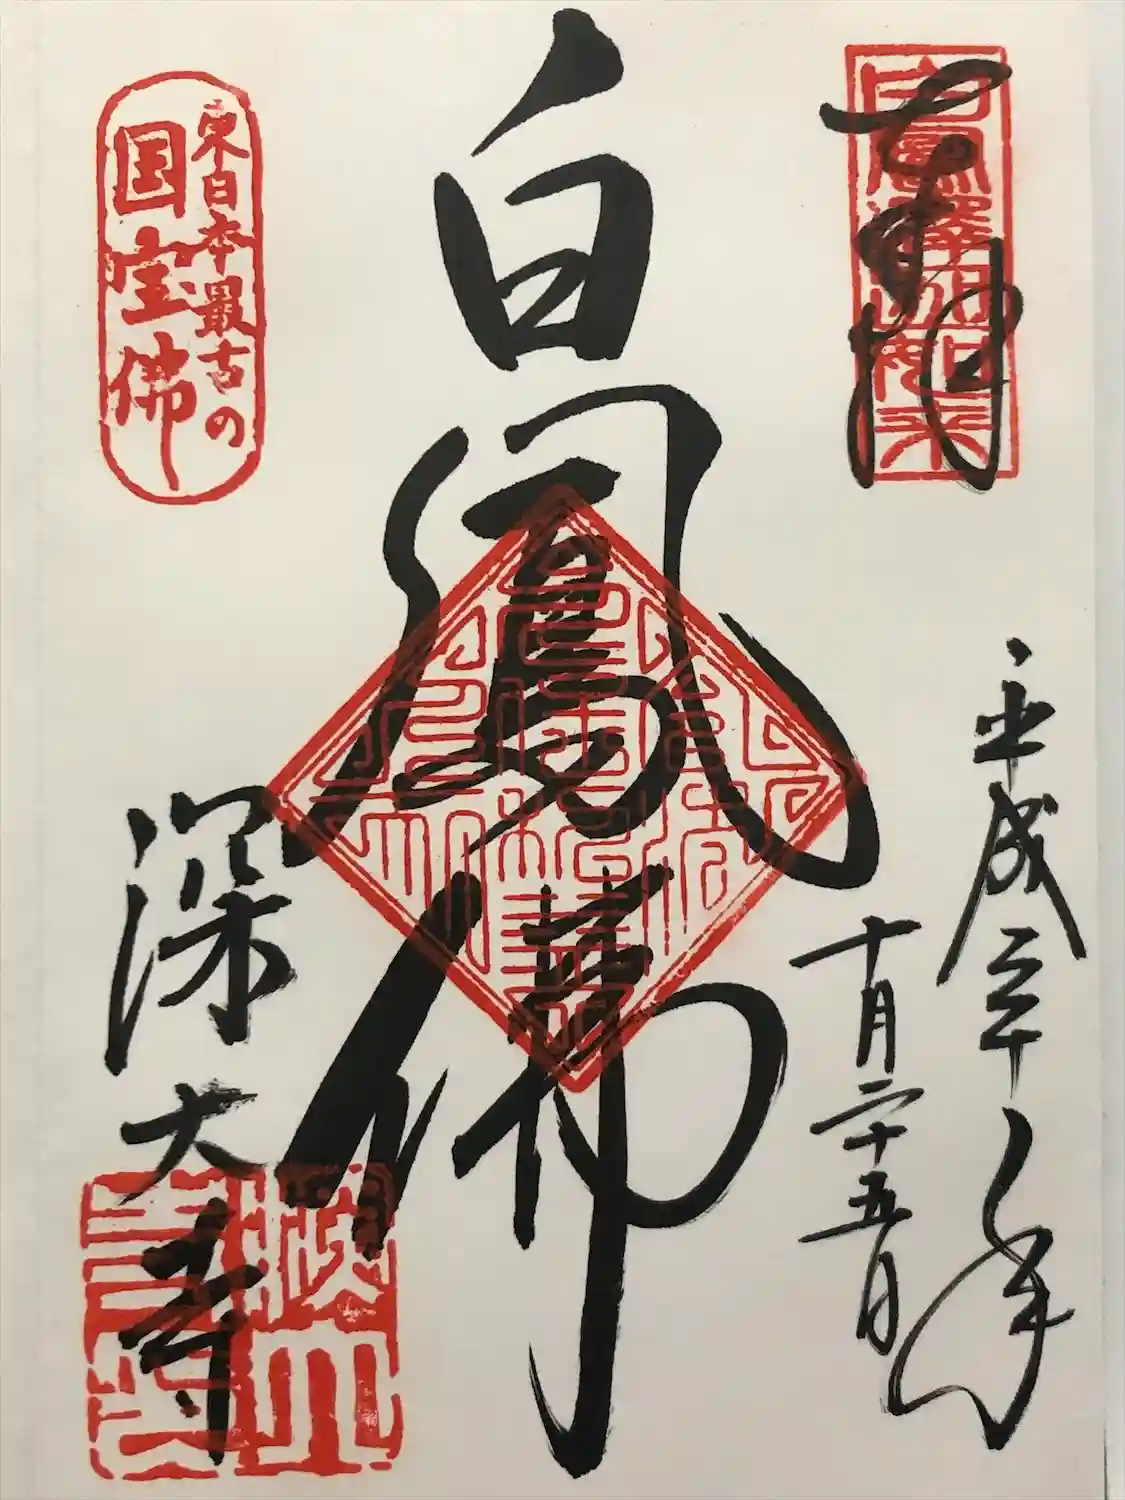 奉拝
白鳳釋迦如来
平成三十年
十月二十五日
白鳳佛
東日本最古の
国宝佛
深大寺